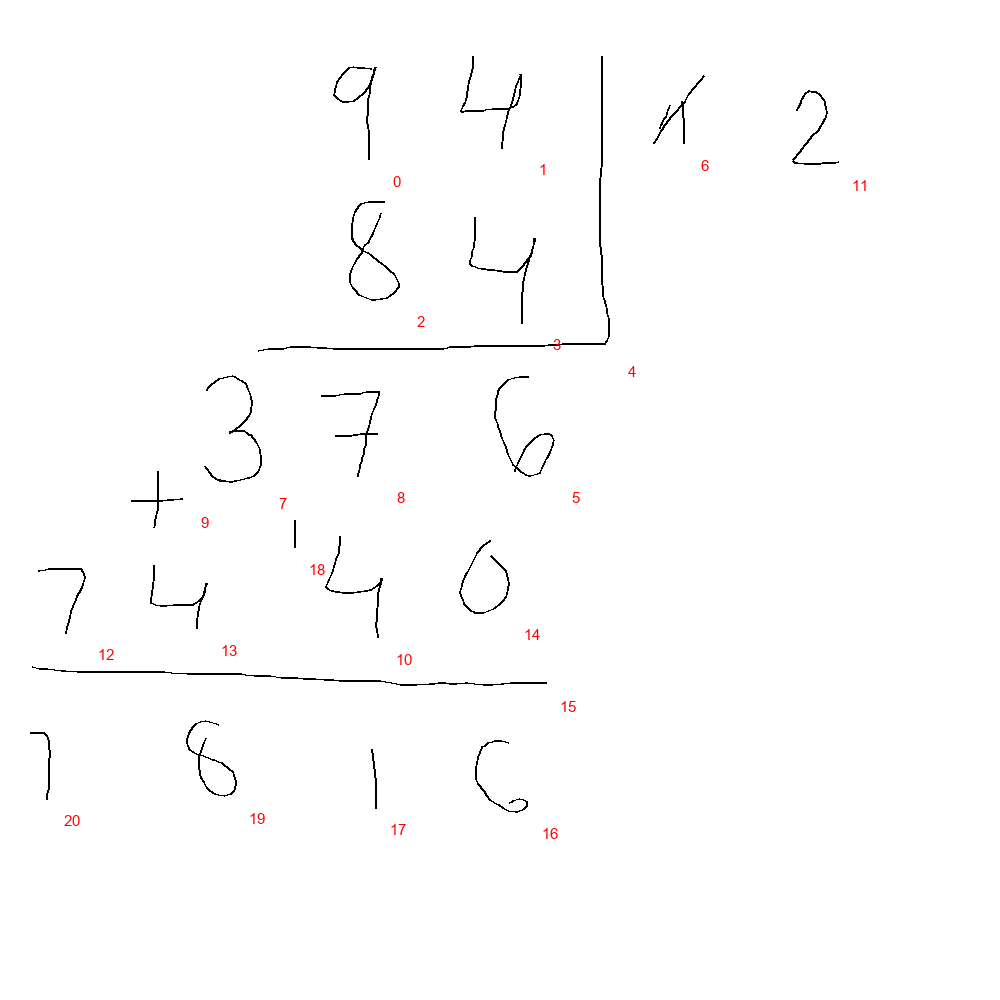 94 1 2
0 1 6 11
84
2 3
4
376
7 8 5
+
9
1
18
7440
12 13 10 14
15
7816
20 19 17 16